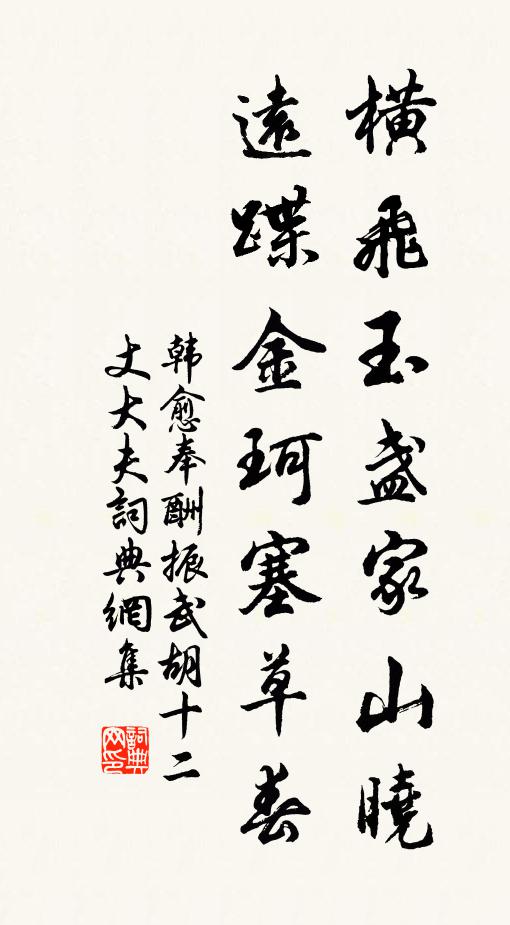 橫飛玉盞家山曉
遠蹀金珂塞草春
韓愈奉酬振武胡十二
丈大夫詞典網集
詞典網印